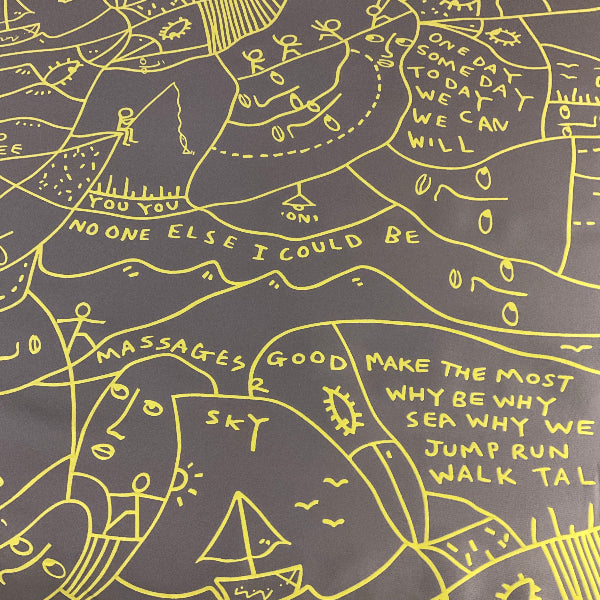 ONE DAY
SOMEDAY
TODAY
WE CAN
WE CAN
WILL
EE
YOU YOU
ON
NO ONE ELSE I COULD BE
MASSAGES 2
GOOD
MAKE THE MOST
WHY BE WHY
SEA WHY WE
JUMP RUN
WALK TAL
SKY